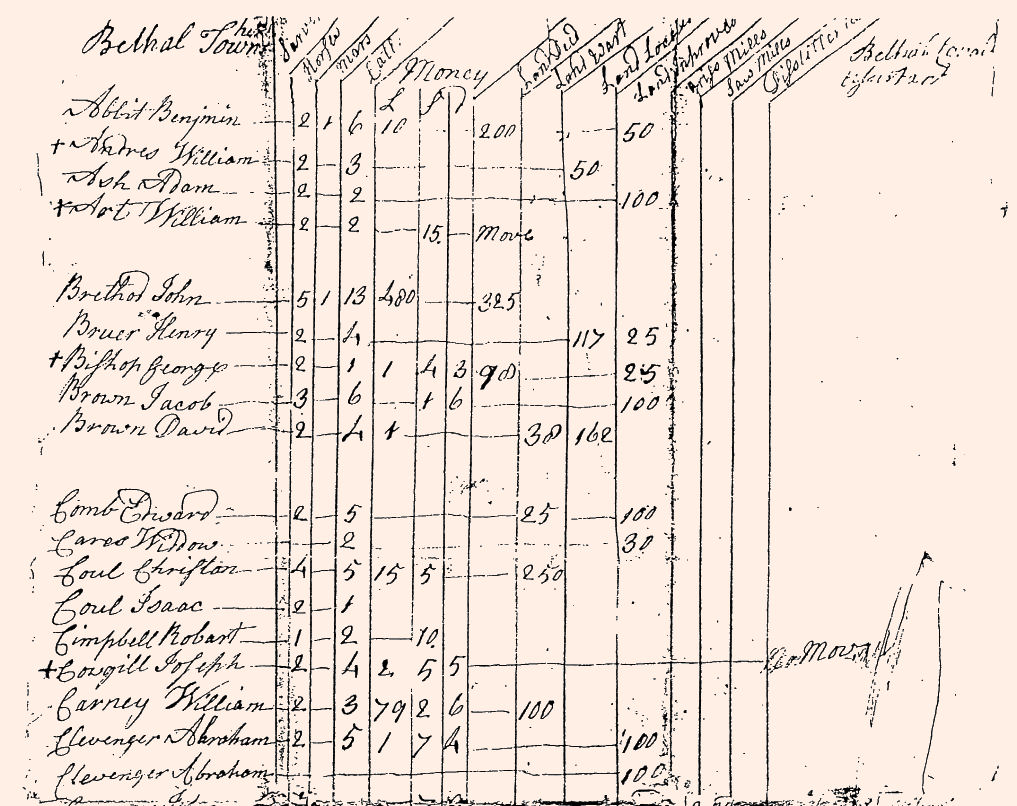 Bethal Town Horses Mars Catt. Money Land Warr Land Improved Saw Mills
£ s D
Abbit Benjmin 2 1 6 10 200 50
+ Andres William 2 3 50
Ash Adam 2 2 100
+ Art William 2 2 15. Move
Brethod John 5 1 13 480 325
Bruer Henry 2 4 117 25
+ Bishop George 2 1 1 4 3 98 25
Brown Jacob 3 6 1 6 100
Brown David 2 4 1 38 162
Comb Edward 2 5 25 100
Cares Widow 2 30
Coul Christon 4 5 15 5 250
Coul Isaac 2 1
Cimpbell Robart 1 2 10.
+ Cowgill Joseph 2 4 2 5 5
Carney William 2 3 79 2 6 100
Clevenger Abraham 2 5 1 7 4 100
Clevenger Abraham 100